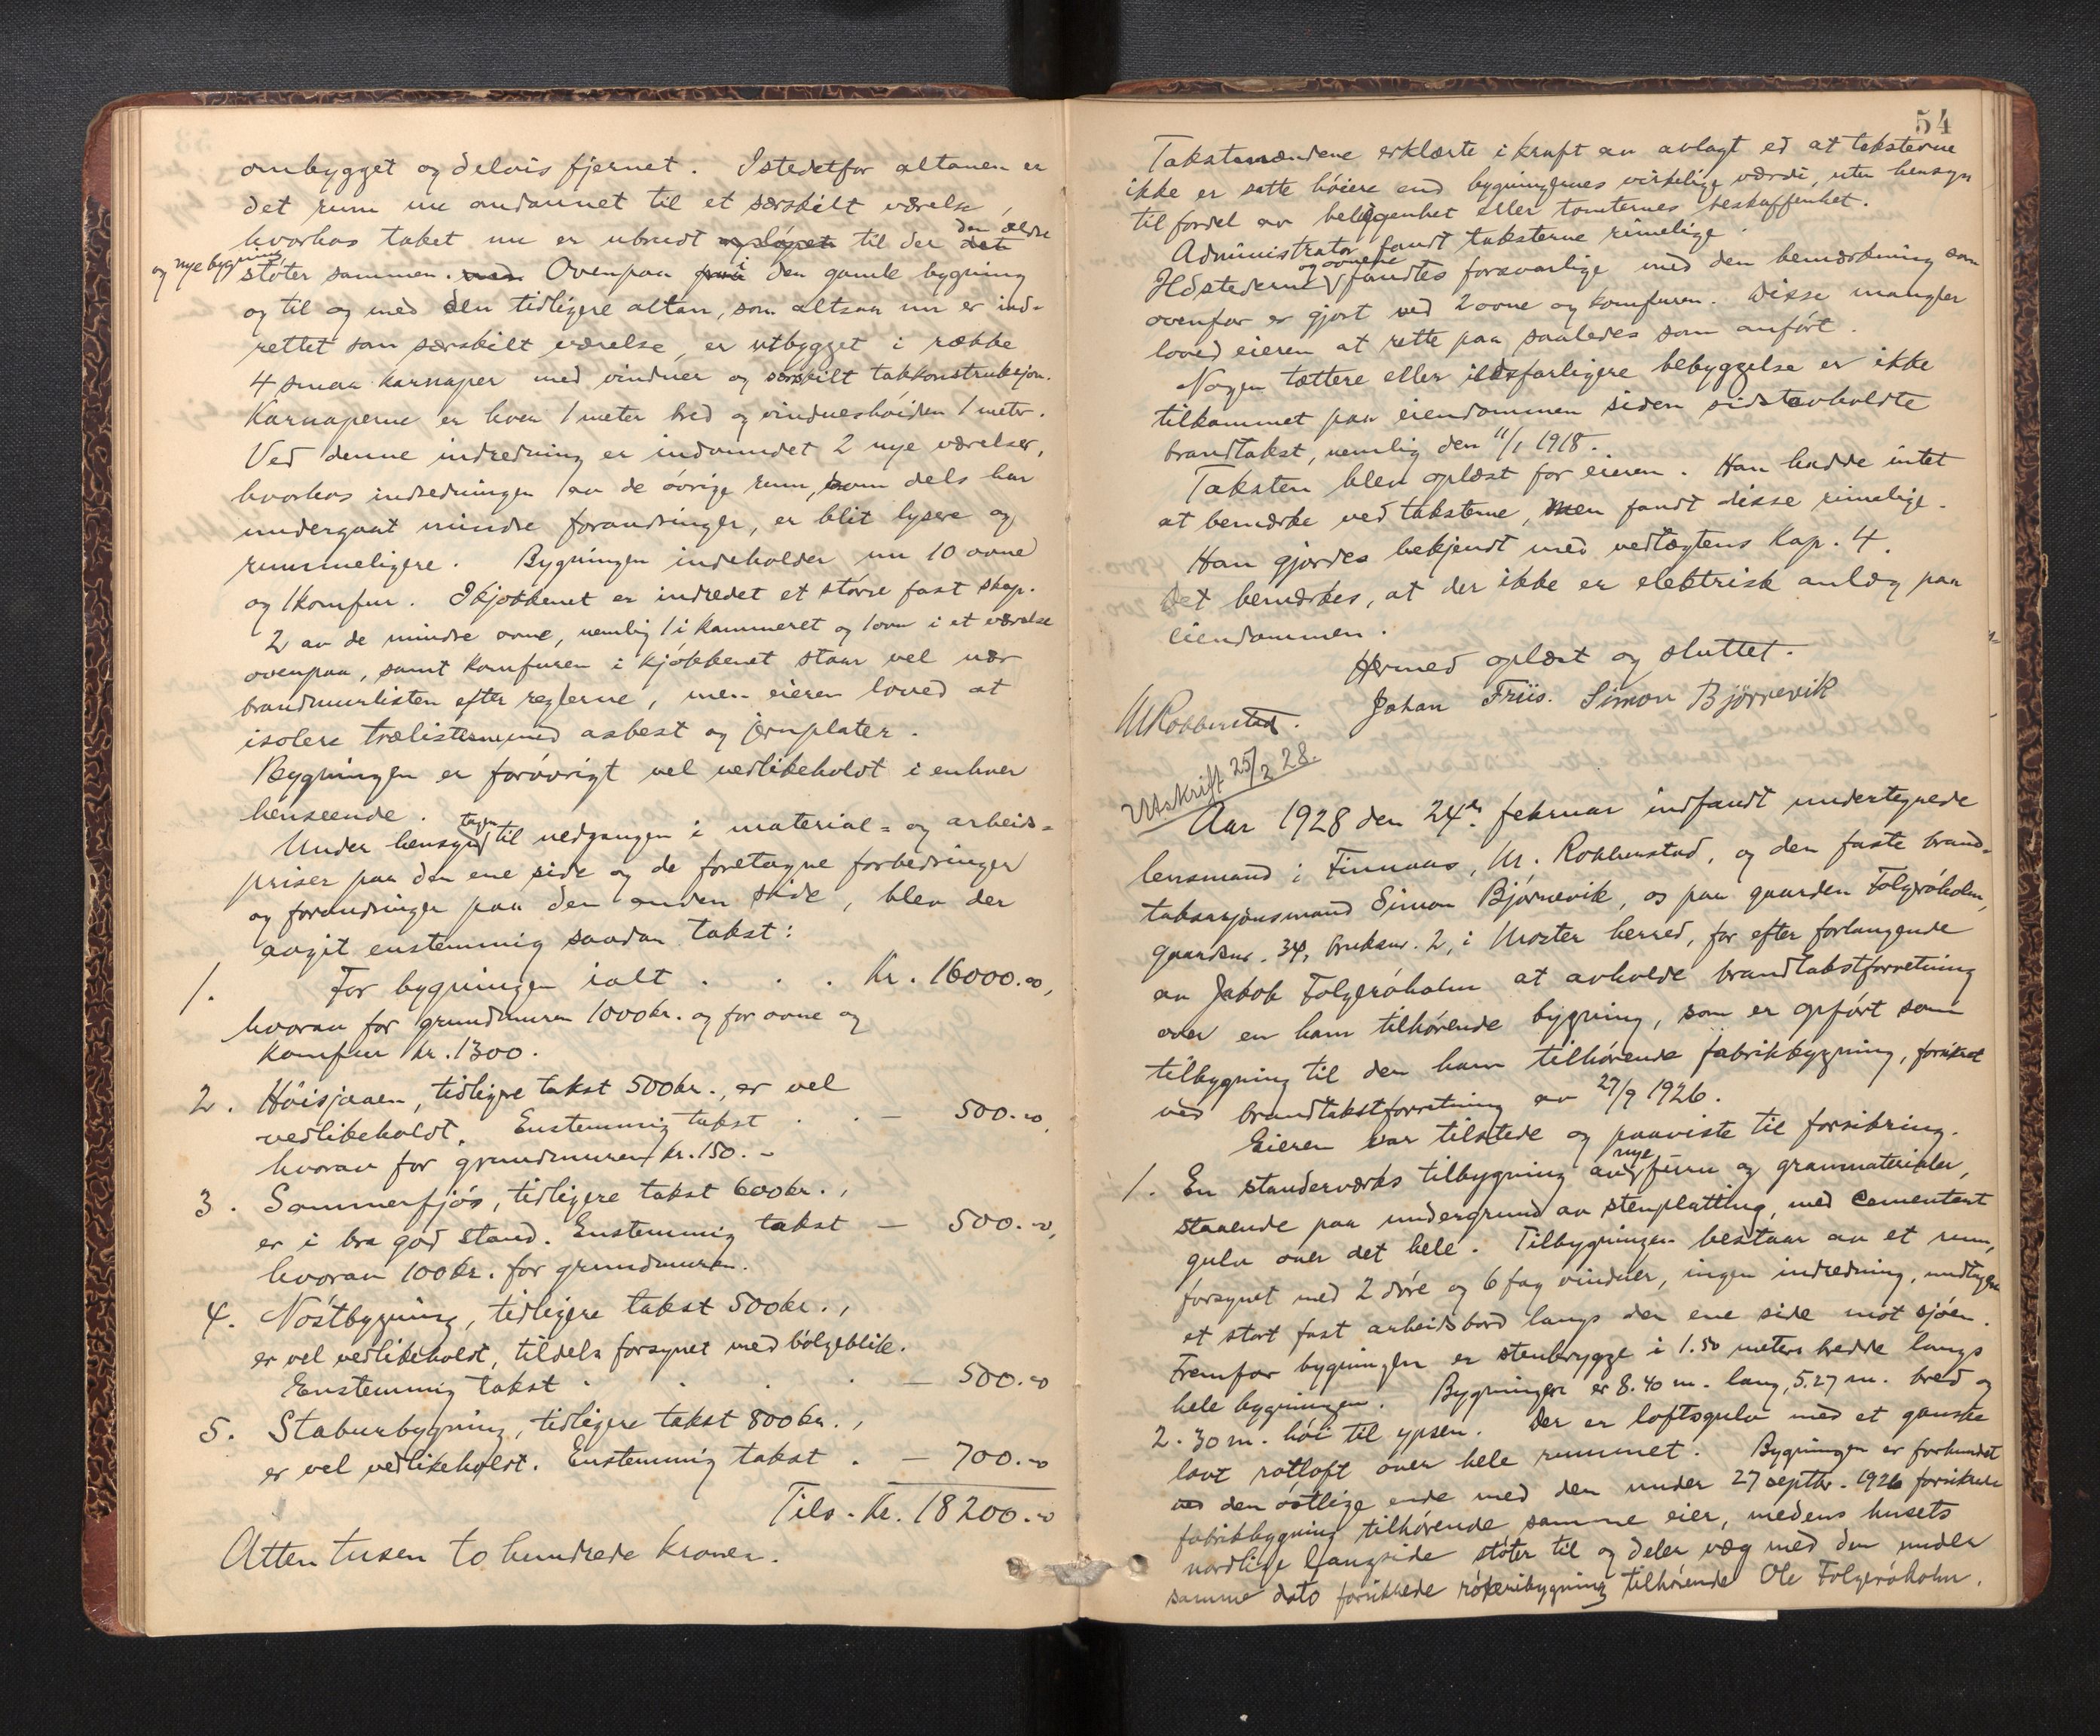 ombygget og delvis fjernet. Istedetfor altanen er
det rum nu omdannet til et særskilt værelse,
hvorhos taket nu er utbrudt og sløpet til der det den ældre
og nye bygning støter sammen. ned. Ovenpaa paa i den gamle bygning
og til og med den tidligere altan, som altsaa nu er ind-
rettet som særskilt værelse, er utbygget i række
4 smaa karnaper med vinduer og særskilt takkonstruksjon.
Karnaperne er hver 1 meter bred og vindueshøiden 1 meter.
Ved denne indredning er indvundet 2 nye værelser,
hvorhos indredningen av de øvrige rum, som dels har
undergaat mindre forandringer, er blit lysere og
rummeligere. Bygningen indeholder nu 10 ovne
og 1 komfur. I kjøkkenet er indredet et større fast skap.
2 av de mindre ovne, nemlig 1 i kammeret og 1 ovn i et værelse
ovenpaa, samt komfuren i kjøkkenet staar vel nær
brandmurlisten efter reglerne, men eieren loved at
isolere trælisterne med asbest og jernplater.
Bygningen er forøvrigt vel vedlikeholdt i enhver
henseende.
Under hensyn tagen til nedgangen i material- og arbeids-
priser paa den ene side og de foretagne forbedringer
og forandringer paa den anden side, blev der
avgit enstemmig saadan takst:
1. For bygningen ialt . . . Kr. 16000.00,
hvorav for grundmuren 1000 kr. og for ovne og
komfur kr. 1300.
2. Høisjaaen, tidligere takst 500 kr., er vel
vedlikeholdt. Enstemmig takst . . — 500.00,
hvorav for grundmuren kr. 150.-
3. Sommerfjøs, tidligere takst 600 kr.,
er i bra god stand. Enstemmig takst — 500.00,
hvorav 100 kr. for grundmuren.
4. Nøstbygning, tidligere takst 500 kr.,
er vel vedlikeholdt, tildels forsynet med bølgeblik.
Enstemmig takst . . . . — 500.00
5. Staburbygning, tidligere takst 800 kr.,
er vel vedlikeholdt. Enstemmig takst . — 700.00
Tils. Kr. 18200.00
Atten tusen to hundrede kroner.
54
Takstmændene erklærte i kraft av avlagt ed at taksterne
ikke er satte høiere end bygningernes virkelige værdi, uten hensyn
til fordel av beliggenhet eller tomternes beskaffenhet.
Administrator fandt taksterne rimelige.
Ildstederne og ovnene fandtes forsvarlige med den bemærkning som
ovenfor er gjort ved 2 ovne og komfuren. Disse mangler
loved eieren at rette paa saaledes som anført.
Nogen tættere eller ildsfarligere bebyggelse er ikke
tilkommet paa eiendommen siden sidst avholdte
brandtakst, nemlig den 11/1 1918.
Taksten blev oplæst for eieren. Han hadde intet
at bemærke ved taksterne, men fandt disse rimelige.
Han gjordes bekjendt med vedtægtens Kap. 4.
Det bemærkes, at der ikke er elektrisk anlæg paa
eiendommen.
Hermed oplæst og sluttet.
M Robberstad. Johan Friis. Simon Bjørnevik
Utskrift 25/2 28.
Aar 1928 den 24de februar indfandt undertegnede
lensmand i Finnaas, M. Robberstad, og den faste brand-
taksasjonsmand Simon Bjørnevik, os paa gaarden Folgerøholm,
gaardsnr. 34, bruksnr. 2, i Moster herred, for efter forlangende
av Jakob Folgerøholm at avholde brandtakstforretning
over en ham tilhørende bygning, som er opført som
tilbygning til den ham tilhørende fabrikbygning, forsikret
ved brandtakstforretning av 27/9 1926.
Eieren var tilstede og paaviste til forsikring.
1. En standerværks tilbygning av nye furu og granmaterialer,
staaende paa undergrund av stenplatting, med cementert
gulv over det hele. Tilbygningen bestaar av et rum,
forsynet med 2 døre og 6 fag vinduer, ingen indredning, undtagen
et stort fast arbeidsbord langs den ene side mot sjøen.
Fremfor bygningen er stenbrygge i 1.50 meters bredde langs
hele bygningen. Bygningen er 8.40 m. lang, 5.27 m. bred og
2.30 m. høi til ypsen. Der er loftsgulv med et ganske
lavt røtloft over hele rummet. Bygningen er forbundet
ved den østlige ende med den under 27 septbr. 1926 forsikrede
fabrikbygning tilhørende samme eier, medens husets
nordlige langside støter til og deler væg med den under
samme dato forsikrede røkeribygning tilhørende Ole Folgerøholm.